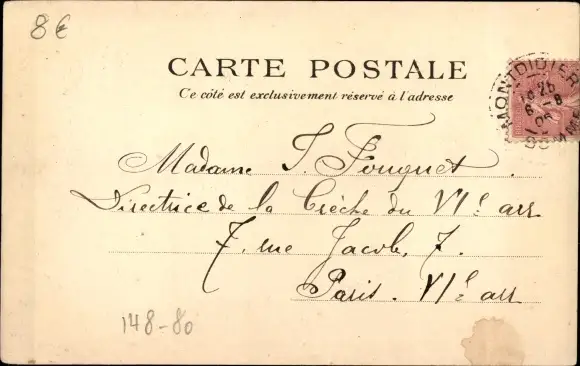 8€
CARTE POSTALE
Ce côté est exclusivement réservé à l'adresse
MONTDIDIER
SOMME
Madame J. Fouquet.
Directrice de la Crèche du VIe arr
7, rue Jacob, 7.
Paris. VIe arr
148-80